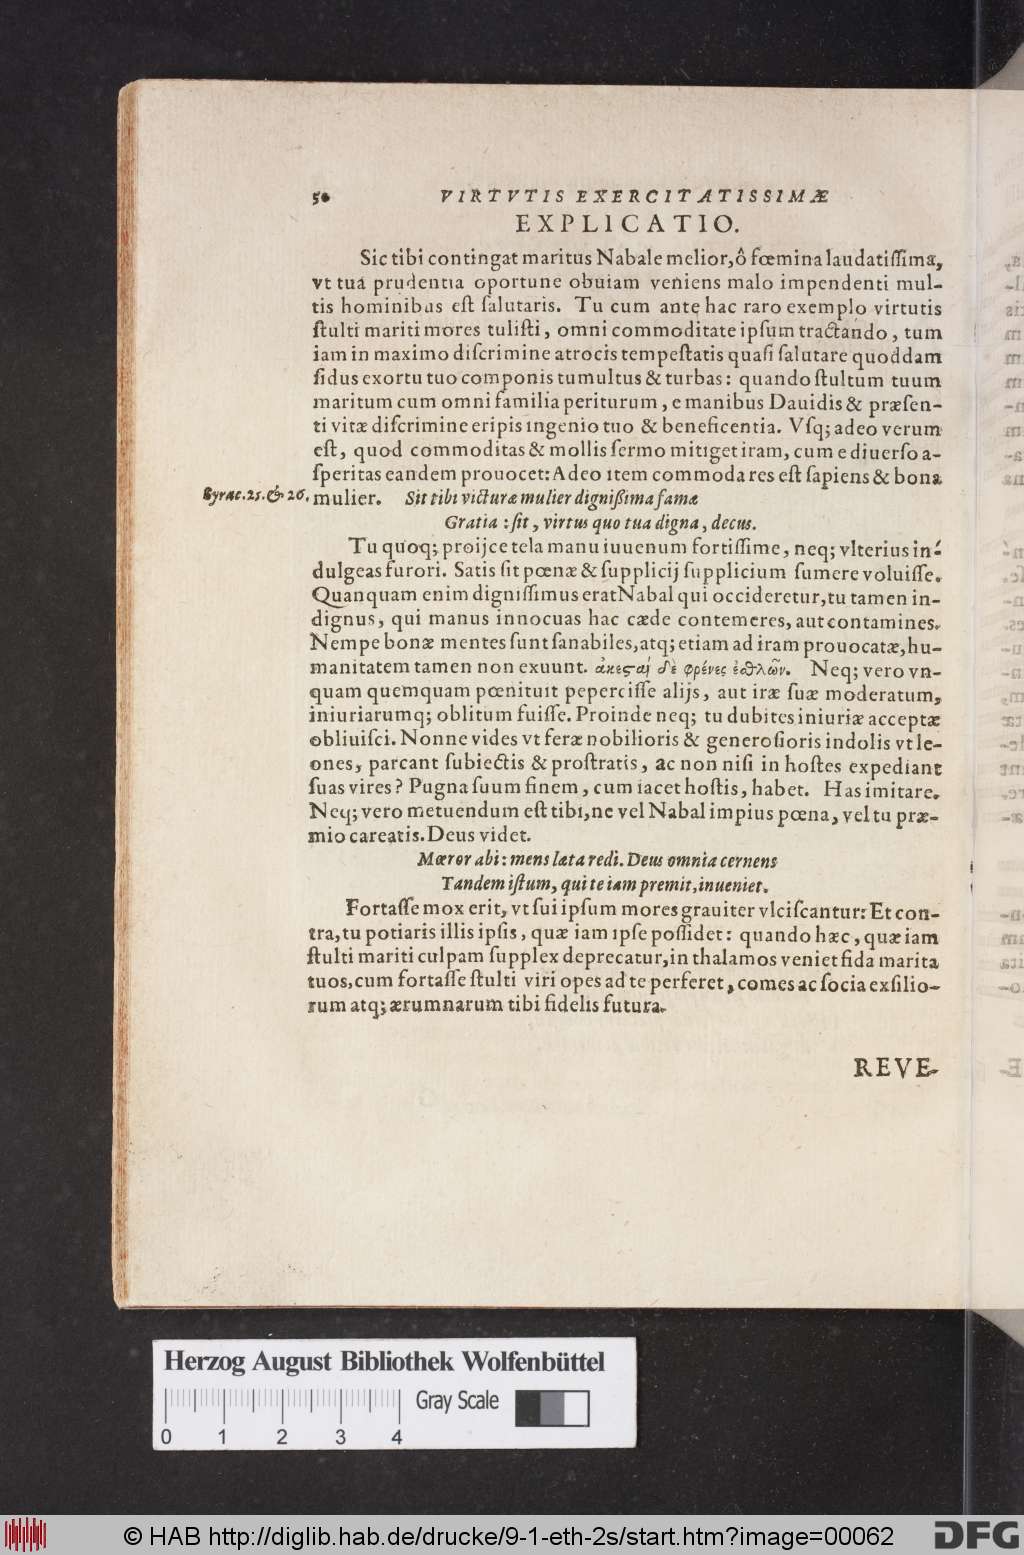 50 VIRTVTIS EXERCITATISSIMÆ
EXPLICATIO.
Sic tibi contingat maritus Nabale melior, ô fœmina laudatiſſima,
vt tua prudentia oportune obuiam veniens malo impendenti mul-
tis hominibus eſt ſalutaris. Tu cum ante hac raro exemplo virtutis
ſtulti mariti mores tuliſti, omni commoditate ipſum tractando, tum
iam in maximo diſcrimine atrocis tempeſtatis quaſi ſalutare quoddam
ſidus exortu tuo componis tumultus & turbas: quando ſtultum tuum
maritum cum omni familia periturum, e manibus Dauidis & præſen-
ti vitæ diſcrimine eripis ingenio tuo & beneficentia. Vſq; adeo verum
eſt, quod commoditas & mollis ſermo mitiget iram, cum e diuerſo a-
ſperitas eandem prouocet: Adeo item commoda res eſt ſapiens & bona
Syrac. 25. & 26. mulier. Sit tibi victuræ mulier digniſſima famæ
Gratia: ſit, virtus quo tua digna, decus.
Tu quoq; proijce tela manu iuuenum fortiſſime, neq; vlterius in-
dulgeas furori. Satis ſit pœnæ & ſupplicij ſupplicium ſumere voluiſſe.
Quanquam enim digniſſimus erat Nabal qui occideretur, tu tamen in-
dignus, qui manus innocuas hac cæde contemeres, aut contamines.
Nempe bonæ mentes ſunt ſanabiles, atq; etiam ad iram prouocatæ, hu-
manitatem tamen non exuunt. ἀκεϛαὶ δὲ φρένες ἐσθλῶν. Neq; vero vn-
quam quemquam pœnituit peperciſſe alijs, aut iræ ſuæ moderatum,
iniuriarumq; oblitum fuiſſe. Proinde neq; tu dubites iniuriæ acceptæ
obliuiſci. Nonne vides vt feræ nobilioris & generoſioris indolis vt le-
ones, parcant ſubiectis & proſtratis, ac non niſi in hoſtes expediant
ſuas vires? Pugna ſuum finem, cum iacet hoſtis, habet. Has imitare.
Neq; vero metuendum eſt tibi, ne vel Nabal impius pœna, vel tu præ-
mio careatis. Deus videt.
Mœror abi: mens læta redi. Deus omnia cernens
Tandem iſtum, qui te iam premit, inueniet.
Fortaſſe mox erit, vt ſui ipſum mores grauiter vlciſcantur: Et con-
tra, tu potiaris illis ipſis, quæ iam ipſe poſſidet: quando hæc, quæ iam
ſtulti mariti culpam ſupplex deprecatur, in thalamos veniet fida marita
tuos, cum fortaſſe ſtulti viri opes ad te perferet, comes ac ſocia exſilio-
rum atq; ærumnarum tibi fidelis futura.
REVE-
Herzog August Bibliothek Wolfenbüttel
Gray Scale
0 1 2 3 4
© HAB http://diglib.hab.de/drucke/9-1-eth-2s/start.htm?image=00062
DFG